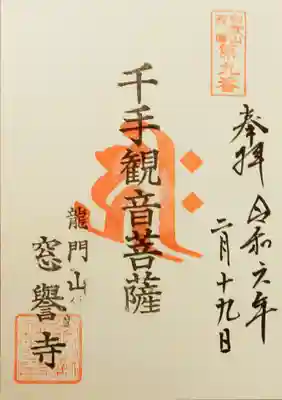 奉拝 令和六年
二月十九日
千手観音菩薩
龍門山
窓譽寺